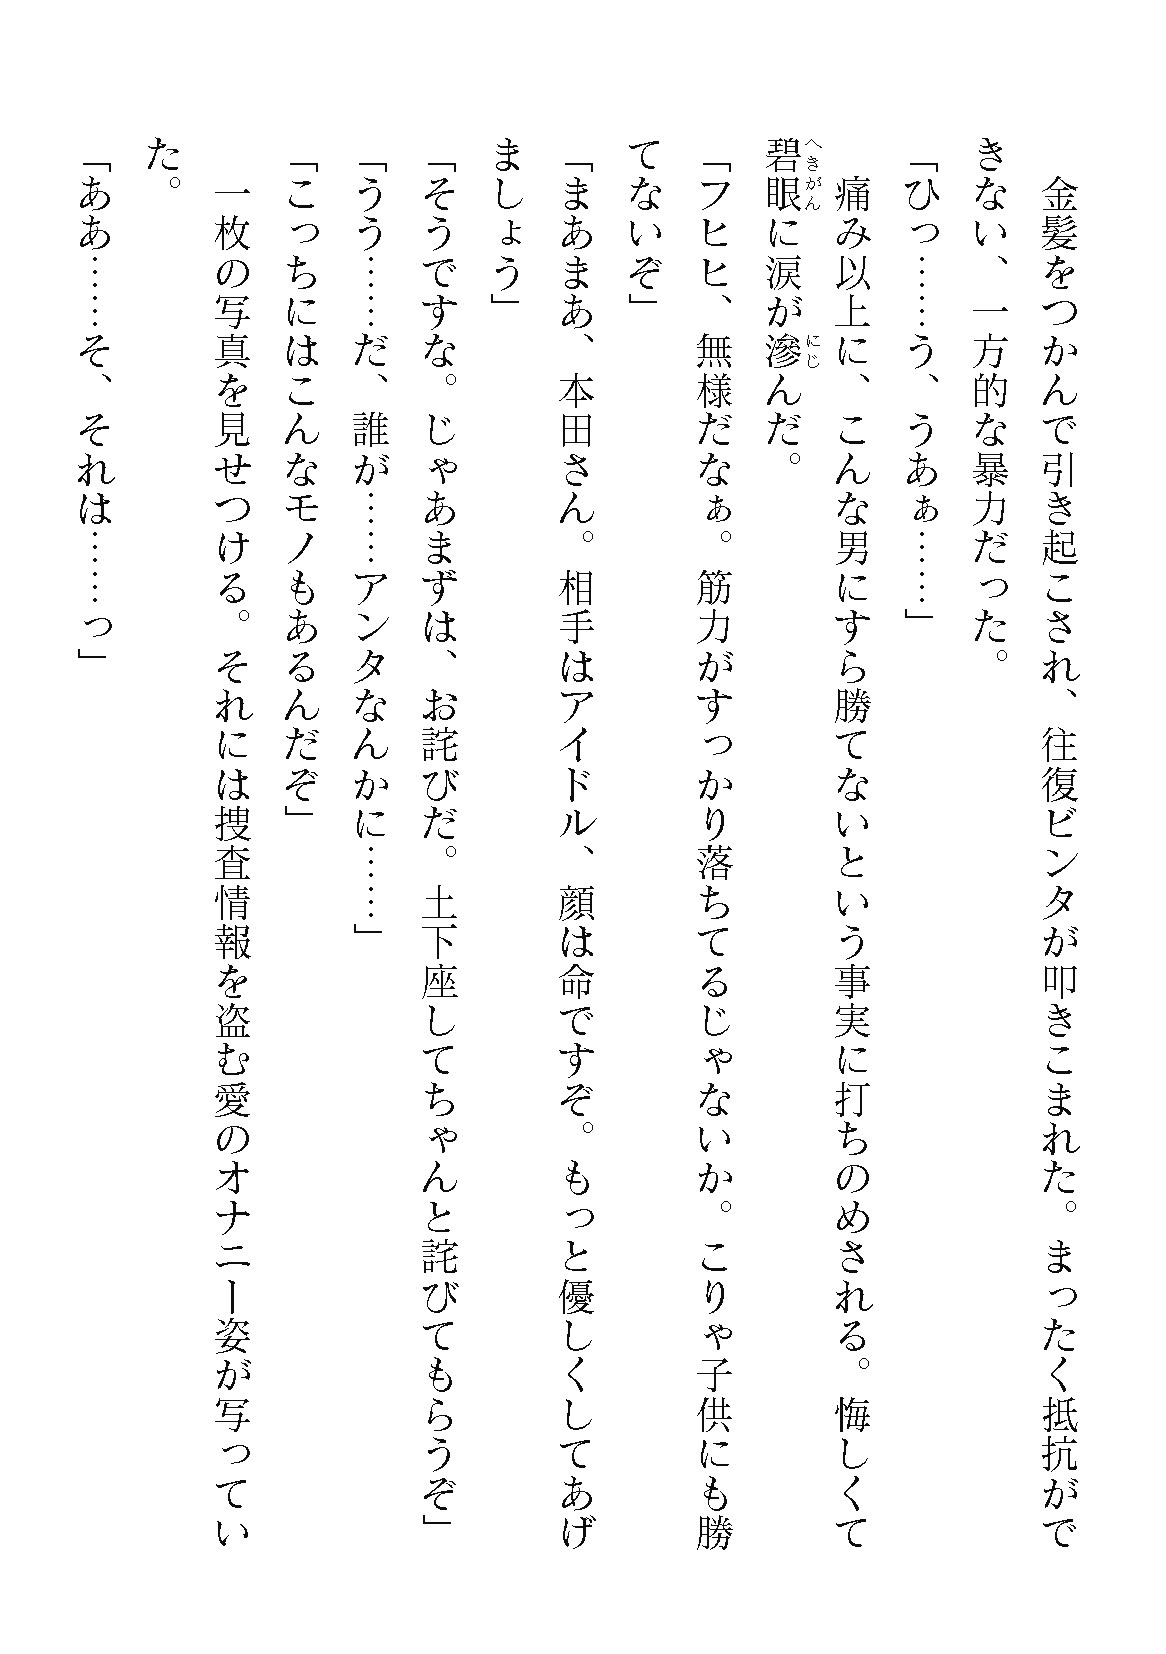 金髪をつかんで引き起こされ、往復ビンタが叩きこまれた。まったく抵抗がで
きない、一方的な暴力だった。
「ひっ……う、うあぁ……」
痛み以上に、こんな男にすら勝てないという事実に打ちのめされる。悔しくて
碧眼に涙が滲んだ。
「フヒヒ、無様だなぁ。筋力がすっかり落ちてるじゃないか。こりゃ子供にも勝
てないぞ」
「まあまあ、本田さん。相手はアイドル、顔は命ですぞ。もっと優しくしてあげ
ましょう」
「そうですな。じゃあまずは、お詫びだ。土下座してちゃんと詫びてもらうぞ」
「うう……だ、誰が……アンタなんかに……」
「こっちにはこんなモノもあるんだぞ」
一枚の写真を見せつける。それには捜査情報を盗む愛のオナニー姿が写ってい
た。
「ああ……そ、それは……っ」